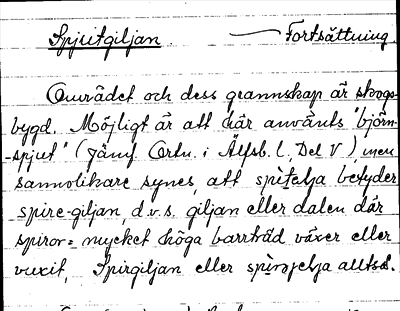 Spjutgiljan — Fortsättning.
Området och dess grannskap är skogs-
bygd. Möjligt är att här använts "björn-
-spjut" (Jämf. Ortn. i Älfsb. l., Del V), men
sannolikare synes, att betyder
spire-giljan, d.v.s. giljan eller dalen där
spiror = mycket höga barrträd växer eller
vuxit, Spirgiljan eller alltså.